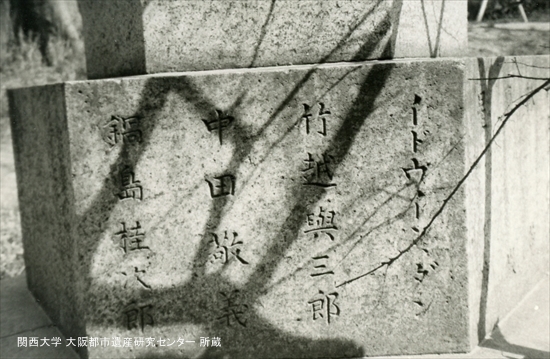 イドヴィンダン
竹越與三郎
中田敬義
鍋島桂次郎
関西大学 大阪都市遺産研究センター 所蔵